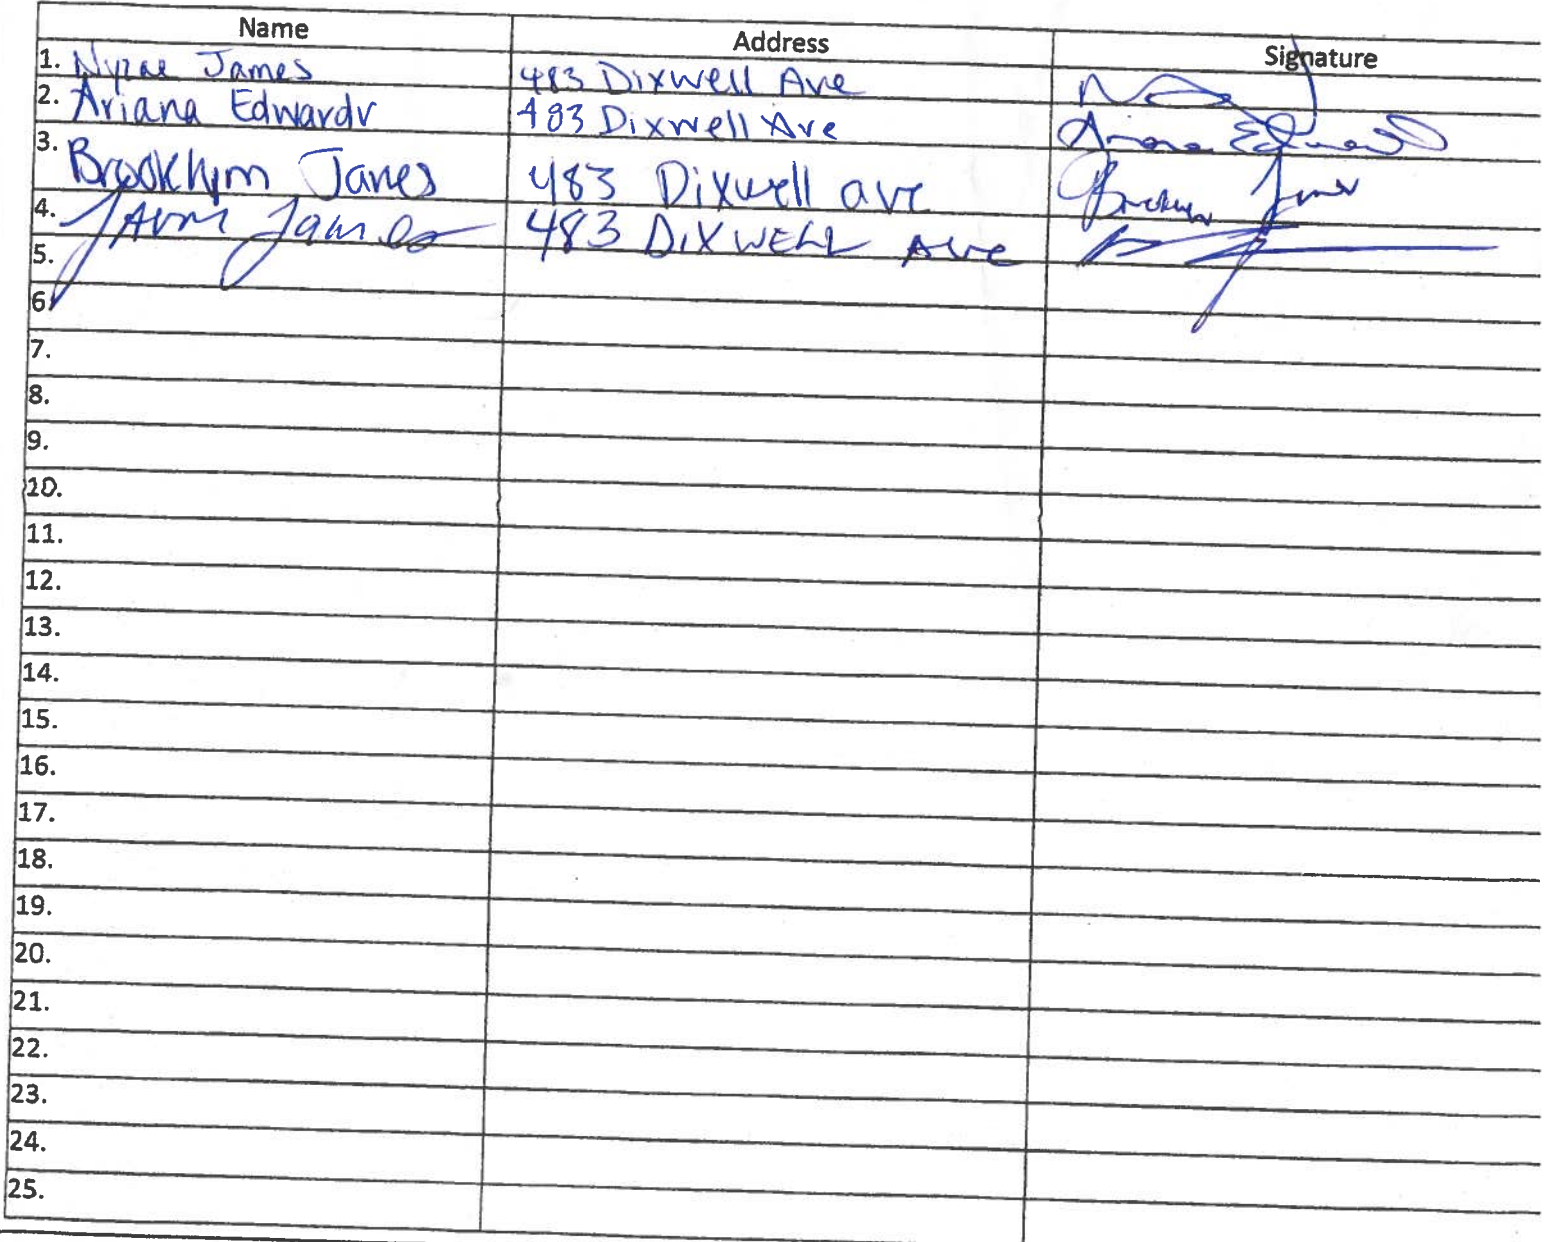 Name Address Signature
1. Nyrae James 483 Dixwell Ave
2. Ariana Edwards 483 Dixwell Ave Ariana Edwards
3. Brooklynn James 483 Dixwell ave
4. James 483 DIXWELL Ave
5.
6.
7.
8.
9.
10.
11.
12.
13.
14.
15.
16.
17.
18.
19.
20.
21.
22.
23.
24.
25.